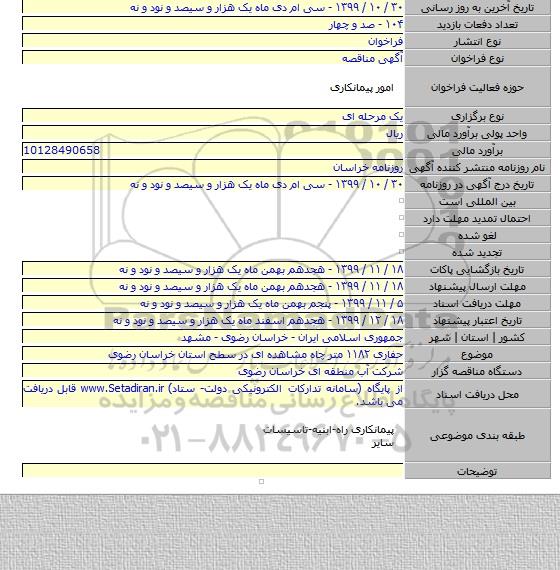 تاریخ آخرین به روز رسانی ۳۰ / ۱۰ / ۱۳۹۹ - سی ام دی ماه یک هزار و سیصد و نود و نه
تعداد دفعات بازدید ۱۰۴ - صد و چهار
نوع انتشار فراخوان
نوع فراخوان آگهی مناقصه
حوزه فعالیت فراخوان امور پیمانکاری
نوع برگزاری یک مرحله ای
واحد پولی برآورد مالی ریال
برآورد مالی 10128490658
نام روزنامه منتشر کننده آگهی روزنامه خراسان
تاریخ درج آگهی در روزنامه ۳۰ / ۱۰ / ۱۳۹۹ - سی ام دی ماه یک هزار و سیصد و نود و نه
بین المللی است
احتمال تمدید مهلت دارد
لغو شده
تجدید شده
تاریخ بازگشایی پاکات ۱۸ / ۱۱ / ۱۳۹۹ - هجدهم بهمن ماه یک هزار و سیصد و نود و نه
مهلت ارسال پیشنهاد ۱۸ / ۱۱ / ۱۳۹۹ - هجدهم بهمن ماه یک هزار و سیصد و نود و نه
مهلت دریافت اسناد ۵ / ۱۱ / ۱۳۹۹ - پنجم بهمن ماه یک هزار و سیصد و نود و نه
تاریخ اعتبار پیشنهاد ۱۸ / ۱۲ / ۱۳۹۹ - هجدهم اسفند ماه یک هزار و سیصد و نود و نه
کشور | استان | شهر جمهوری اسلامی ایران - خراسان رضوی - مشهد
موضوع حفاری ۱۱۸۲ متر چاه مشاهده ای در سطح استان خراسان رضوی
دستگاه مناقصه گزار شرکت آب منطقه ای خراسان رضوی
محل دریافت اسناد از پایگاه (سامانه تدارکات الکترونیکی دولت- ستاد) www.Setadiran.ir قابل دریافت
می باشد.
طبقه بندی موضوعی پیمانکاری راه-ابنیه-تاسیسات
سایر
توضیحات
پایگاه اطلاع رسانی مناقصه و مزایده
۰۲۱-۸۸۳۴۹۶۷۰-۵